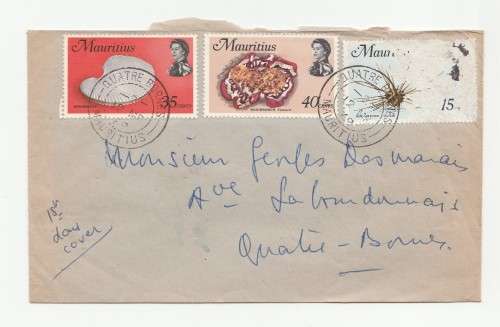 Mauritius
35 CENTS
Mauritius
40
Mauritius
15
QUATRE BORNES
MAURITIUS
QUATRE BORNES
MAURITIUS
Monsieur Georges Desmarais
Ave Labourdonnais
Quatre-Bornes
1st
day
cover